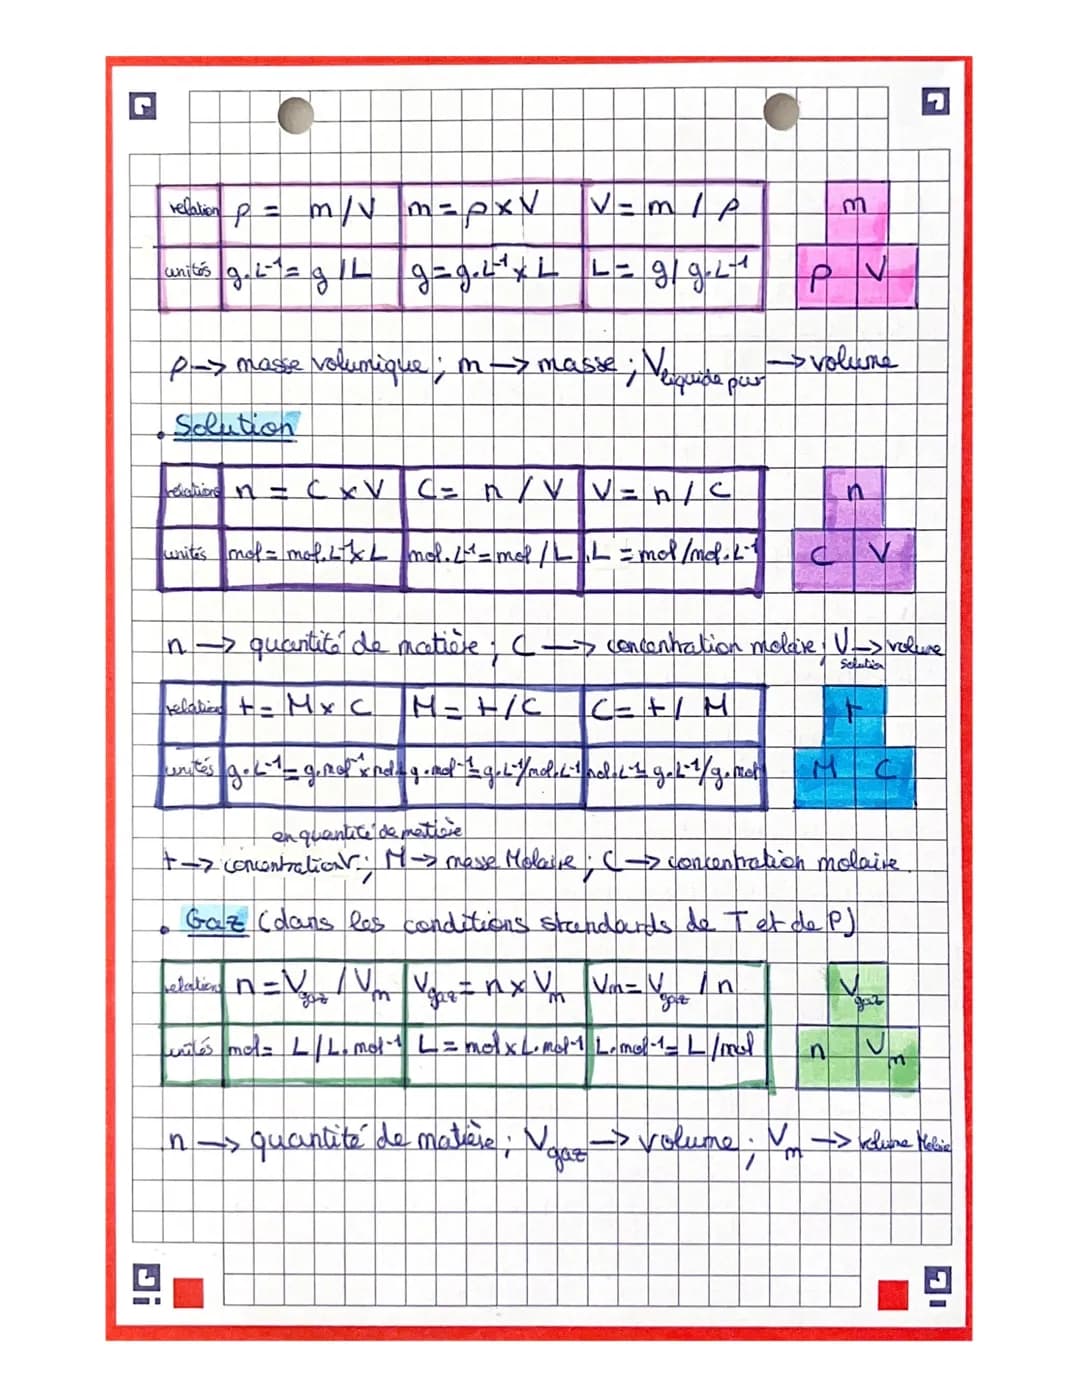 relation ρ = m/V m=ρxV V=m/ρ m
unités g.L⁻¹= g/L g=g.L⁻¹xL L= g/g.L⁻¹ ρ V
ρ→ masse volumique; m→ masse; Vliquide pur→volume
. Solution
relation n = C x V C= n/V V=n/C n
unités mol= mol.L⁻¹xL mol.L⁻¹=mol/L L=mol/mol.L⁻¹ C V
n→ quantité de matière; C→ concentration molaire; V→volume
Solution
relation t= M x C M= t/C C= t/M t
unités g.L⁻¹= g.mol⁻¹xmol.L g.mol⁻¹= g.L⁻¹/mol.L⁻¹ mol.L⁻¹= g.L⁻¹/g.mol M C
en quantité de matière
t→ concentration; M→ masse Molaire; C→ concentration molaire.
. Gaz (dans les conditions standards de T et de P)
relation n=Vgaz/Vm Vgaz= n x Vm Vm= Vgaz/n Vgaz
unités mol= L/L.mol⁻¹ L=molxL.mol⁻¹ L.mol⁻¹= L/mol n Vm
n→ quantité de matière; Vgaz→ volume; Vm→ volume Molaire